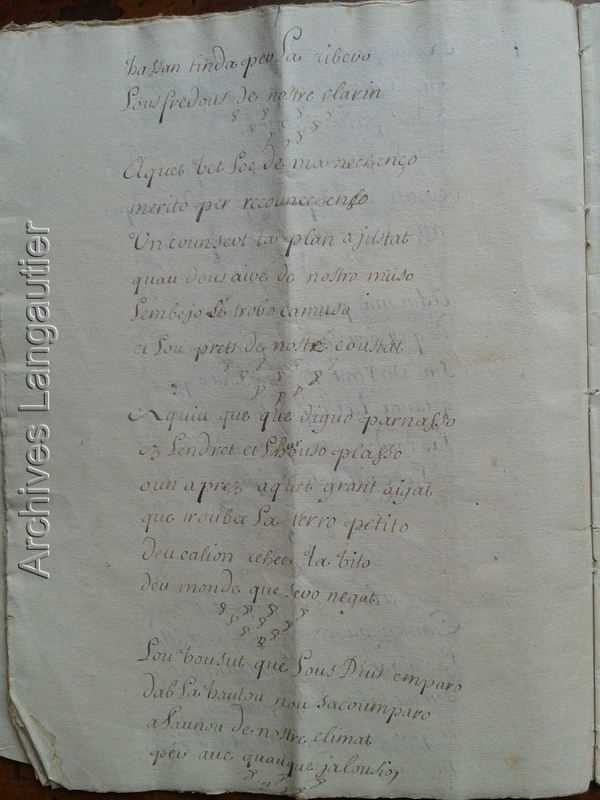 hassan tinda peu La ribero
Lous fredous de nostre clarin
Aquet bet Loc de ma nechenço
merito per recounechenço
Un counseot ta plan ajustat
quau dous aire de nostro muso
Lembejo se trobo camuso
et Lou prets de nostre coustat
Aquiu que que diguo parnasso
ez Lendret et Lhurouso plasso
oun aprez aquet grant aigat
que trouba La terro petito
deucalion rehec ta bito
deu monde que sero negat
Lou bousut que Lous Dius emparo
dab La hautou nou sacoumparo
a Launou de nostre climat
peu auc quauque jalousio
Archives Langautier